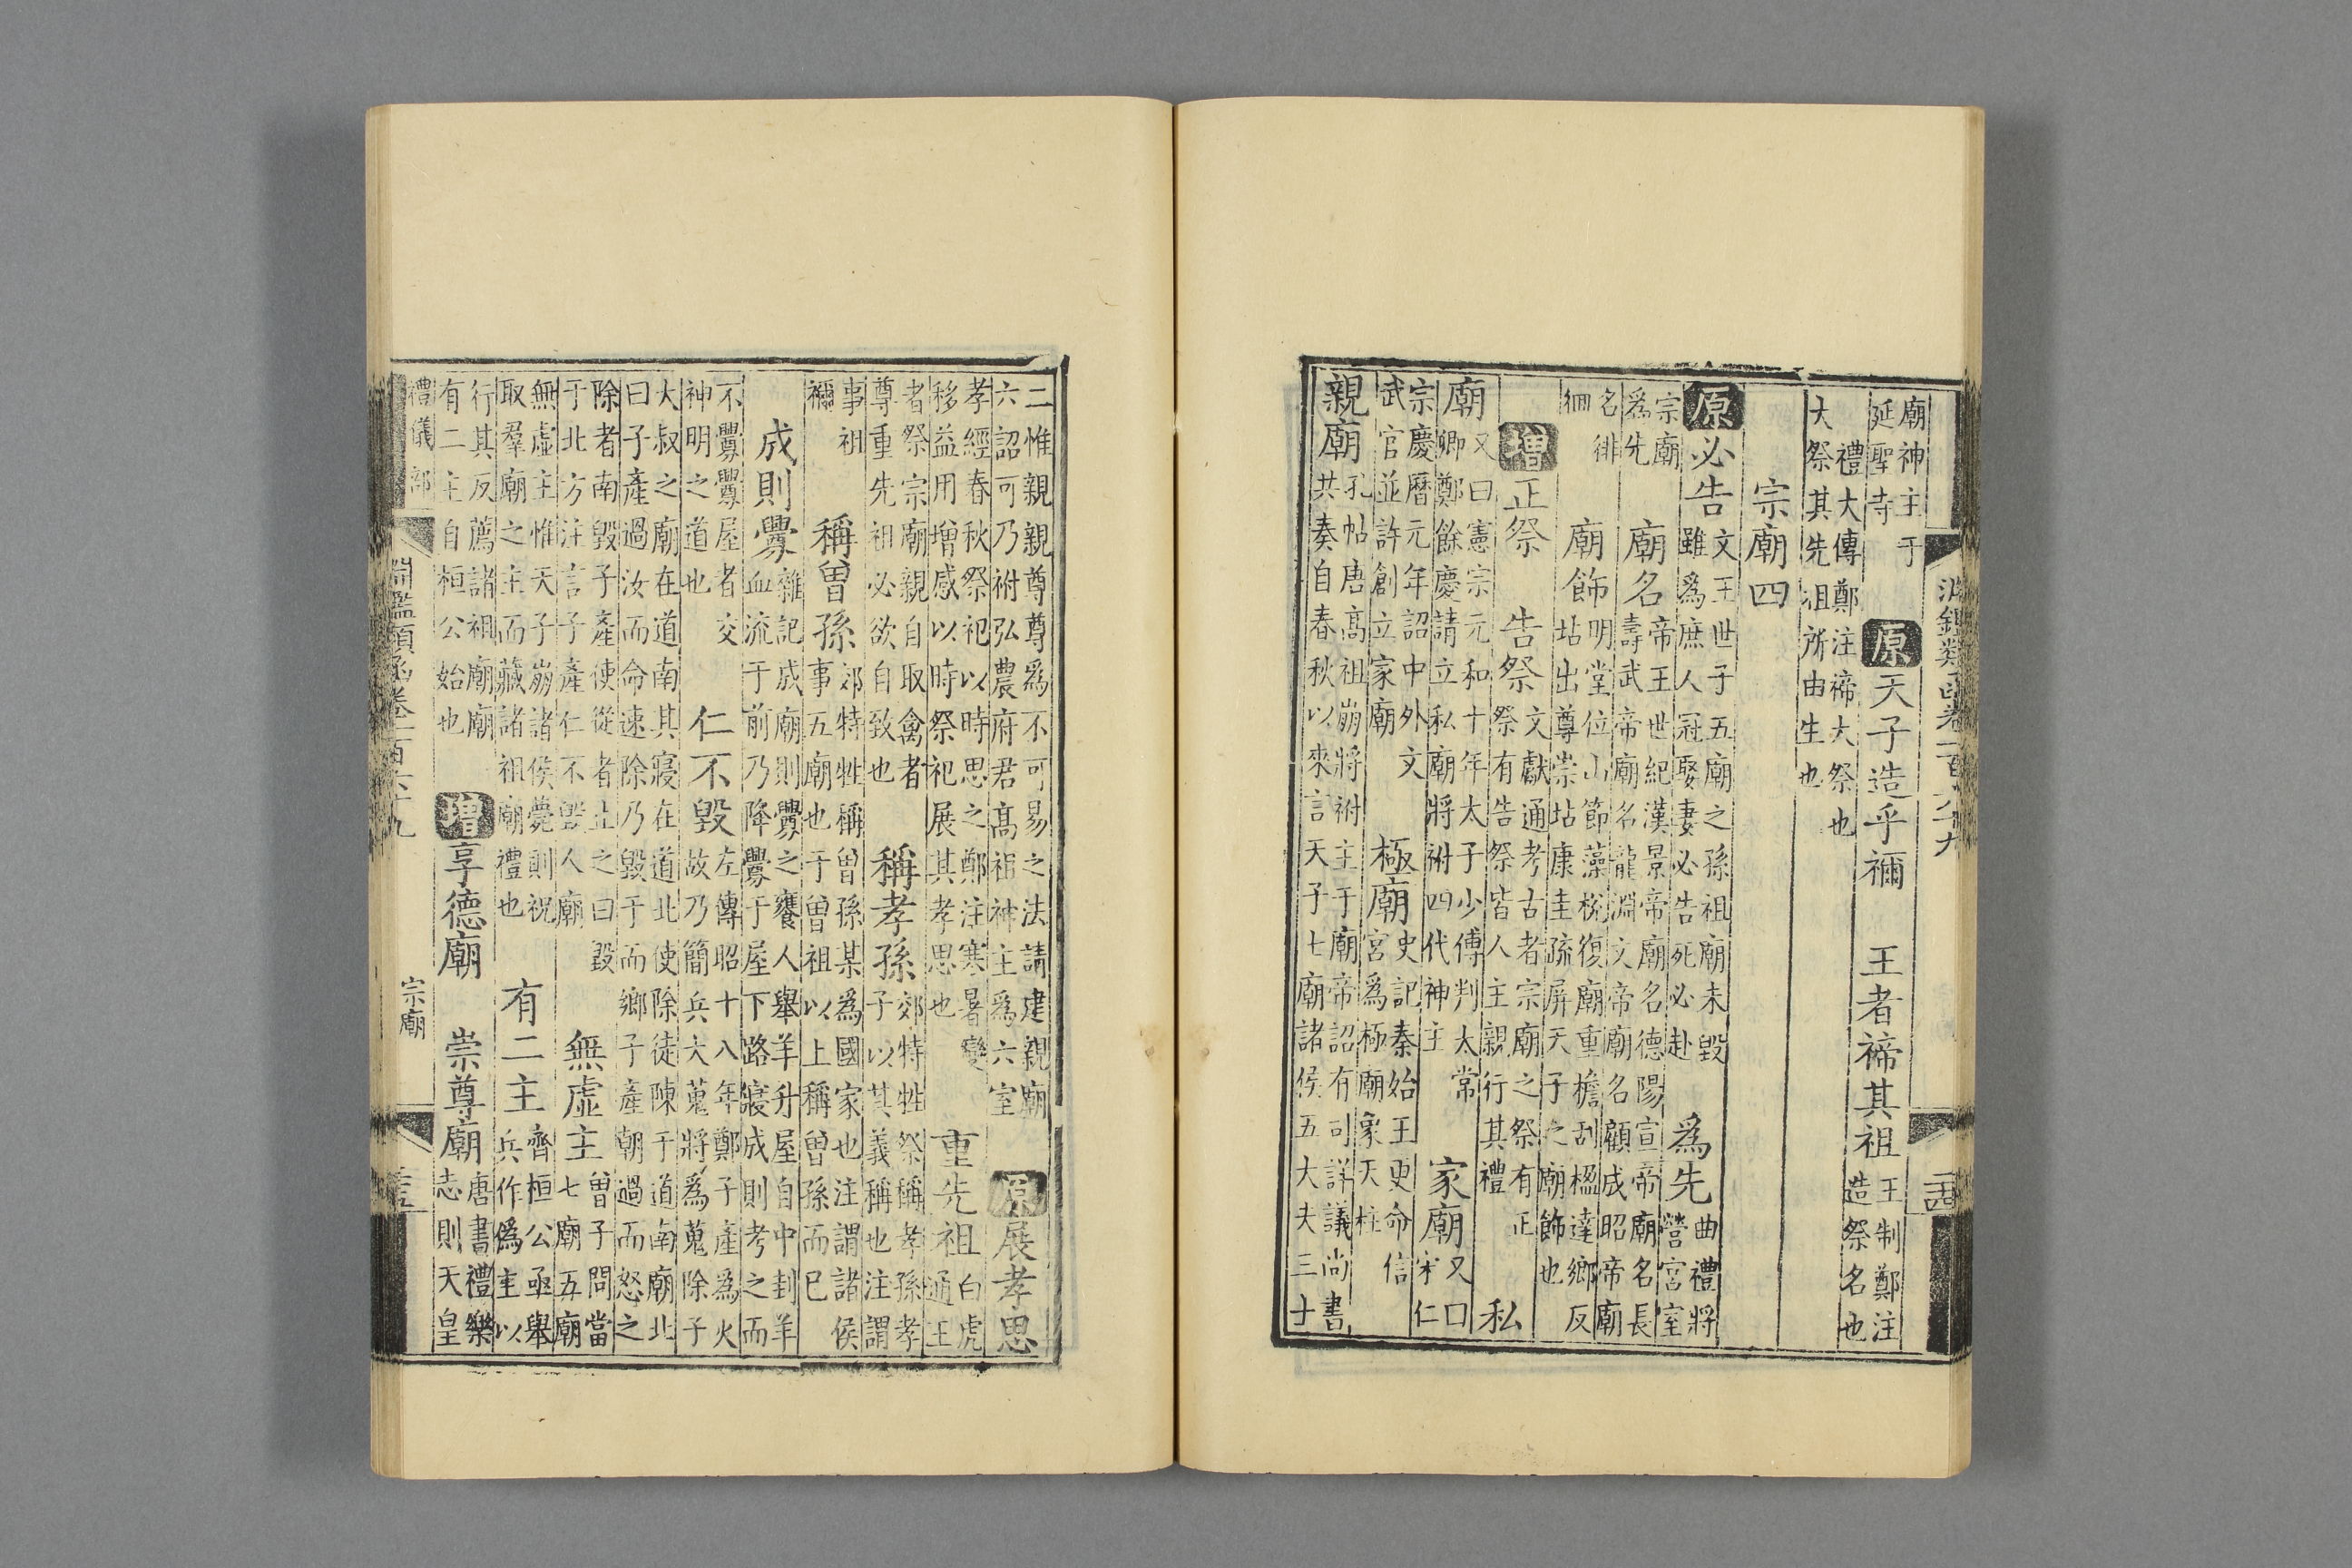 淵鑑類函卷一百六十九 二十四
廟神主于延聖寺 原天子造乎禰 王者禘其祖王制鄭注造祭名也
禮大傳鄭注禘大祭也大祭其先祖所由生也
宗廟四
原必告文王世子五廟之孫祖廟未毀雖爲庶人冠娶妻必告死必赴 爲先曲禮將營宮室
宗廟爲先 廟名帝王世紀漢景帝廟名德陽宣帝廟名長壽武帝廟名龍淵文帝廟名顧成昭帝廟
名徘徊 廟飾明堂位山節藻梲復廟重檐刮楹達鄉反坫出尊崇坫康圭疏屏天子之廟飾也
增正祭 告祭文獻通考古者宗廟之祭有正祭有告祭皆人主親行其禮 私
廟又曰憲宗元和十年太子少傅判太常卿鄭餘慶請立私廟將祔四代神主 家廟又曰宋仁
宗慶曆元年詔中外文武官並許創立家廟 極廟史記秦始王更命信宮爲極廟象天柱
親廟孔帖唐高祖崩將祔主于廟帝詔有可詳議尚書共奏自春秋以來言天子七廟諸侯五大夫三士
二惟親親尊尊爲不可易之法請建親廟六詔可乃祔弘農府君高祖神主爲六室 原展孝思
孝經春秋祭祀以時思之鄭注寒暑變移益用增感以時祭祀展其孝思也 重先祖白虎通王
者祭宗廟親自取禽者尊重先祖必欲自致也 稱孝孫郊特牲祭稱孝孫孝子以其義稱也注謂
事祖禰 稱曾孫郊特牲稱曾孫某爲國家也注謂諸侯事五廟也于曾祖以上稱曾孫而已
成則釁雜記成廟則釁之饔人舉羊升屋自中刲羊血流于前乃降釁于屋下路寢成則考之而
不釁釁屋者交神明之道也 仁不毀左傳昭十八年鄭子產爲火故乃簡兵大蒐將爲蒐除子
大叔之廟在道南其寢在道北使除徒陳于道南廟北曰子產過汝而命速除乃毀于而鄉子產朝過而怒之
除者南毀子產使從者止之曰毀于北方注言子產仁不毀人廟 無虛主曾子問當七廟五廟
無虛主惟天子崩諸侯薨則祝取羣廟之主而藏諸祖廟禮也 有二主齊桓公亟舉兵作僞主以
行其反薦諸祖廟廟有二主自桓公始也 增享德廟 崇尊廟唐書禮樂志則天皇
禮儀部 淵鑑類函卷一百六十九 宗廟 二十五